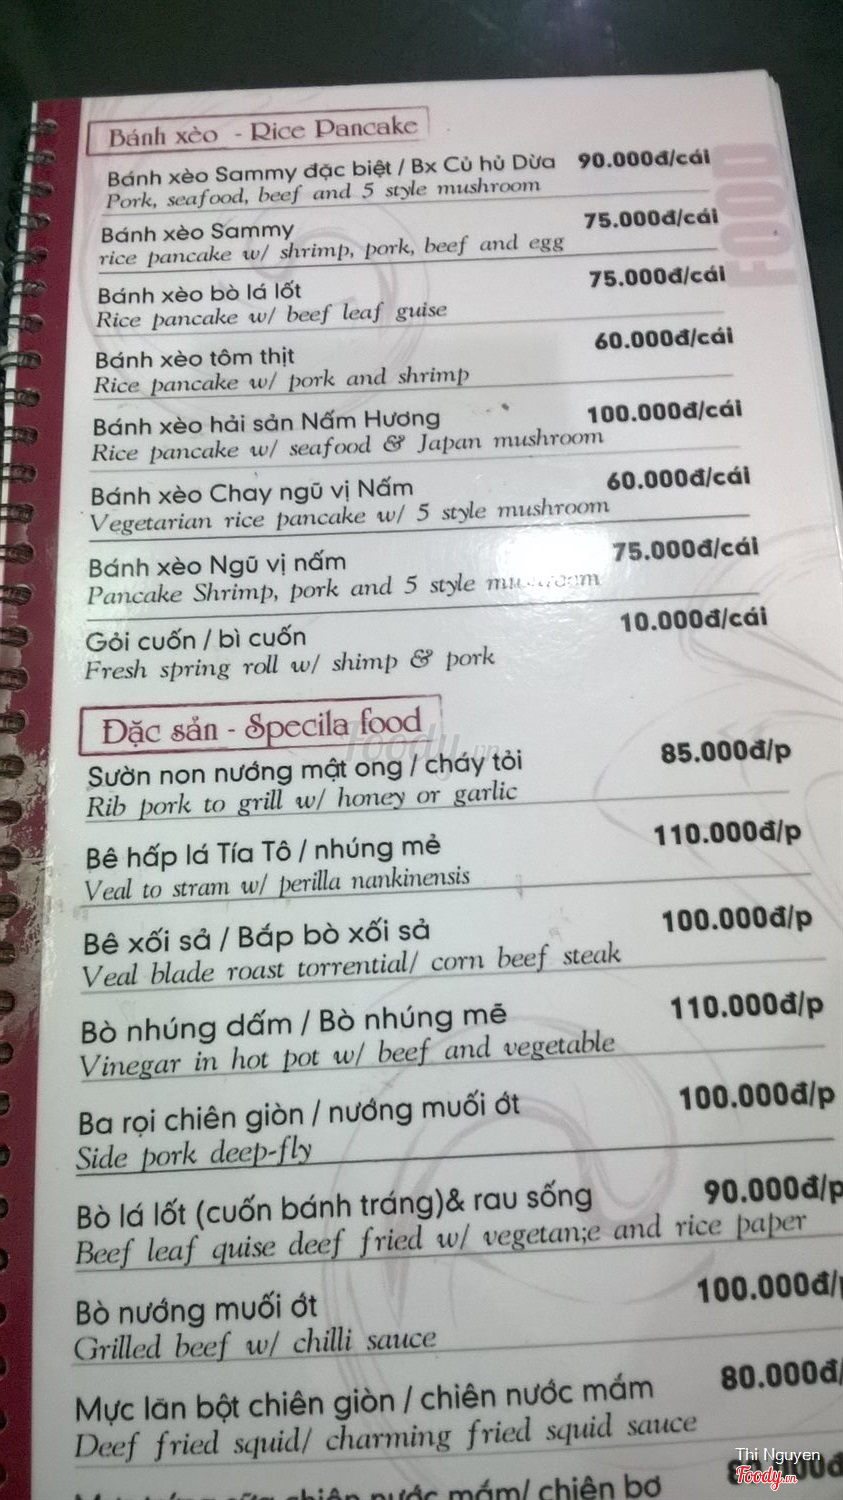 Bánh xèo - Rice Pancake
Bánh xèo Sammy đặc biệt / Bx Củ hủ Dừa 90.000đ/cái
Pork, seafood, beef and 5 style mushroom
Bánh xèo Sammy 75.000đ/cái
rice pancake w/ shrimp, pork, beef and egg
Bánh xèo bò lá lốt 75.000đ/cái
Rice pancake w/ beef leaf guise
Bánh xèo tôm thịt 60.000đ/cái
Rice pancake w/ pork and shrimp
Bánh xèo hải sản Nấm Hương 100.000đ/cái
Rice pancake w/ seafood & Japan mushroom
Bánh xèo Chay ngũ vị Nấm 60.000đ/cái
Vegetarian rice pancake w/ 5 style mushroom
Bánh xèo Ngũ vị nấm 75.000đ/cái
Pancake Shrimp, pork and 5 style mushroom
Gỏi cuốn / bì cuốn 10.000đ/cái
Fresh spring roll w/ shimp & pork
FOOD
Đặc sản - Specila food
Sườn non nướng mật ong / cháy tỏi 85.000đ/p
Rib pork to grill w/ honey or garlic
Bê hấp lá Tía Tô / nhúng mẻ 110.000đ/p
Veal to stram w/ perilla nankinensis
Bê xối sả / Bắp bò xối sả 100.000đ/p
Veal blade roast torrential/ corn beef steak
Bò nhúng dấm / Bò nhúng mẽ 110.000đ/p
Vinegar in hot pot w/ beef and vegetable
Ba rọi chiên giòn / nướng muối ớt 100.000đ/p
Side pork deep-fly
Bò lá lốt (cuốn bánh tráng)& rau sống 90.000đ/p
Beef leaf quise deef fried w/ vegetan;e and rice paper
Bò nướng muối ớt 100.000đ/
Grilled beef w/ chilli sauce
Mực lăn bột chiên giòn / chiên nước mắm 80.000đ/
Deef fried squid/ charming fried squid sauce
chiên nước mắm/ chiên bơ
Thi Nguyen
Foody.vn